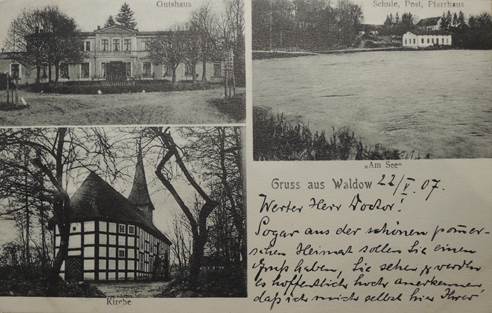 Gutshaus
Schule, Post, Pfarrhaus
„Am See“
Kirche
Gruss aus Waldow 22/V. 07.
Werter Herr Doctor!
Sogar aus der schönen pommer-
schen Heimat sollen Sie einen
Gruß haben, Sie sehen, werden
es hoffentlich hoch anerkennen,
daß ich mich selbst hier Ihrer